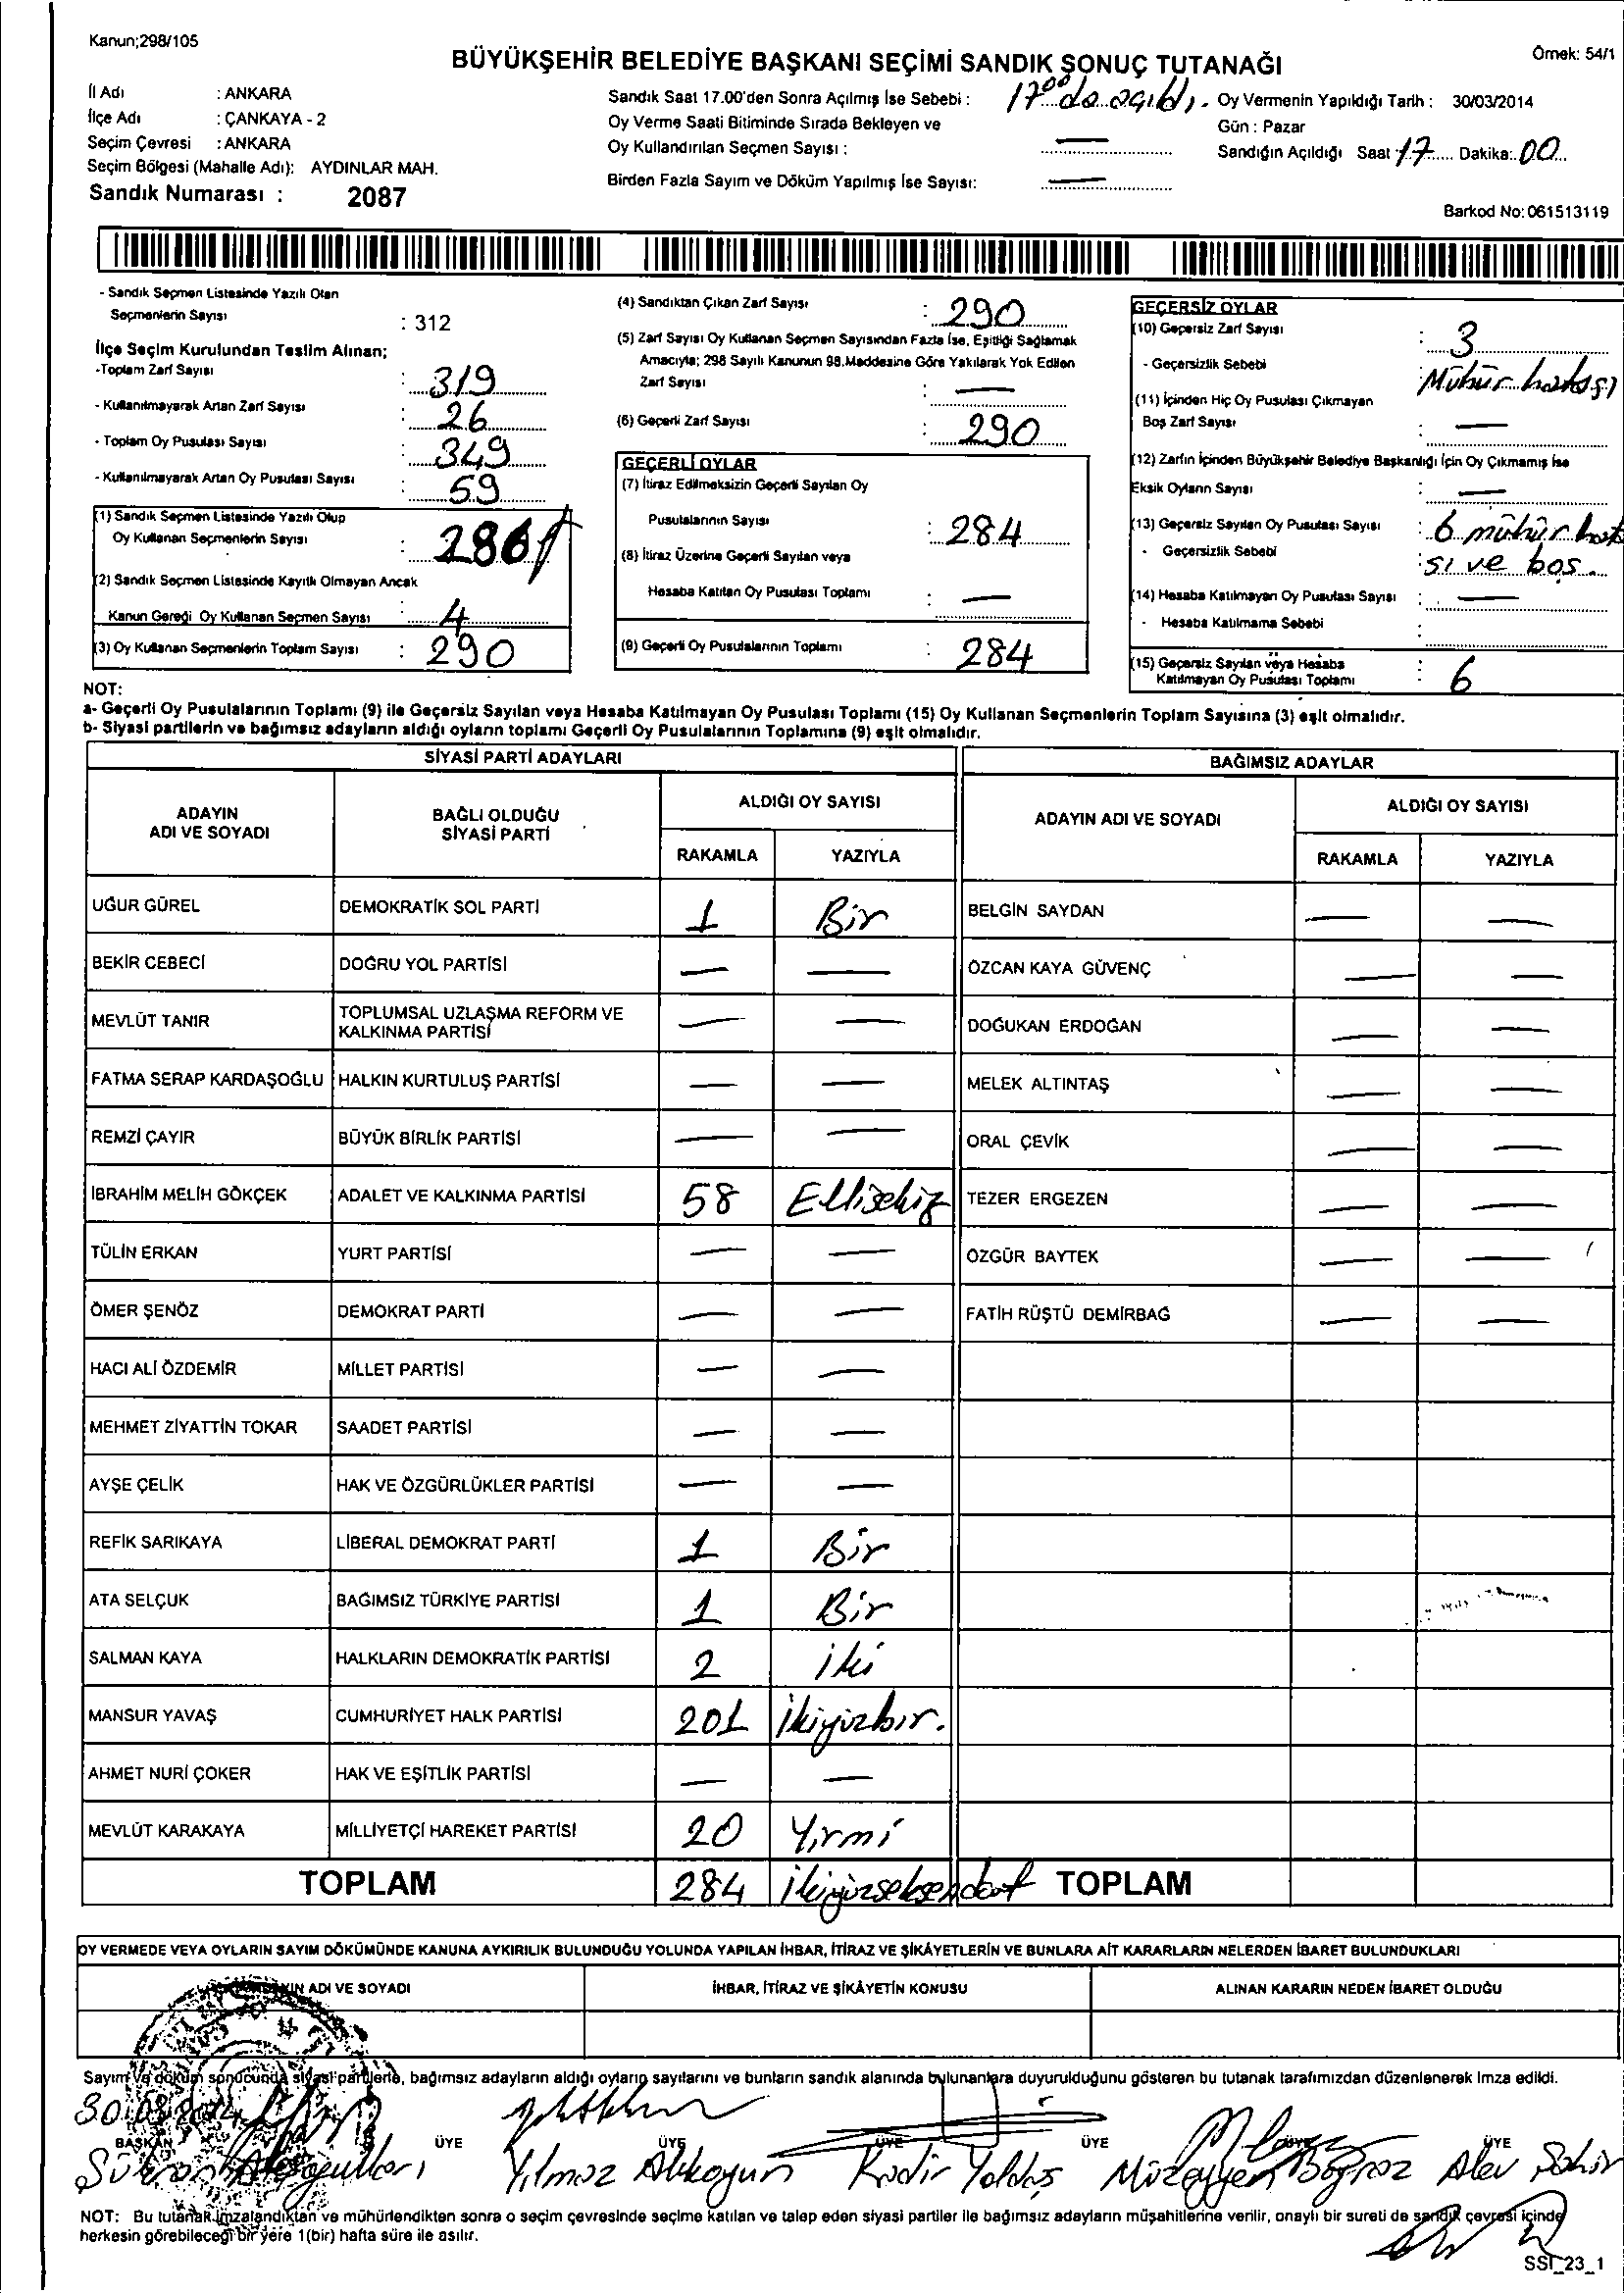 Kanun;298/105
BÜYÜKŞEHİR BELEDİYE BAŞKANI SEÇİMİ SANDIK SONUÇ TUTANAĞI
Örnek: 54/1
İl Adı : ANKARA
İlçe Adı : ÇANKAYA - 2
Seçim Çevresi : ANKARA
Seçim Bölgesi (Mahalle Adı): AYDINLAR MAH.
Sandık Numarası : 2087
Sandık Saat 17.00'den Sonra Açılmış İse Sebebi : 17⁰⁰ da açıldı.
Oy Verme Saati Bitiminde Sırada Bekleyen ve
Oy Kullandırılan Seçmen Sayısı : —
Birden Fazla Sayım ve Döküm Yapılmış İse Sayısı: —
Oy Vermenin Yapıldığı Tarih : 30/03/2014
Gün : Pazar
Sandığın Açıldığı Saat : 17 Dakika: 00
Barkod No: 061513119
- Sandık Seçmen Listesinde Yazılı Olan
Seçmenlerin Sayısı : 312
İlçe Seçim Kurulundan Teslim Alınan;
-Toplam Zarf Sayısı : 319
- Kullanılmayarak Artan Zarf Sayısı : 26
- Toplam Oy Pusulası Sayısı : 349
- Kullanılmayarak Artan Oy Pusulası Sayısı : 59
(1) Sandık Seçmen Listesinde Yazılı Olup
Oy Kullanan Seçmenlerin Sayısı : 286
(2) Sandık Seçmen Listesinde Kayıtlı Olmayan Ancak
Kanun Gereği Oy Kullanan Seçmen Sayısı : 4
(3) Oy Kullanan Seçmenlerin Toplam Sayısı : 290
(4) Sandıktan Çıkan Zarf Sayısı : 290
(5) Zarf Sayısı Oy Kullanan Seçmen Sayısından Fazla İse, Eşitliği Sağlamak
Amacıyla; 298 Sayılı Kanunun 98.Maddesine Göre Yakılarak Yok Edilen
Zarf Sayısı : —
(6) Geçerli Zarf Sayısı : 290
GEÇERLİ OYLAR
(7) İtiraz Edilmeksizin Geçerli Sayılan Oy
Pusulalarının Sayısı : 284
(8) İtiraz Üzerine Geçerli Sayılan veya
Hesaba Katılan Oy Pusulası Toplamı : —
(9) Geçerli Oy Pusulalarının Toplamı : 284
GEÇERSİZ OYLAR
(10) Geçersiz Zarf Sayısı : 3
- Geçersizlik Sebebi : Mühür hatası
(11) İçinden Hiç Oy Pusulası Çıkmayan
Boş Zarf Sayısı : —
(12) Zarfın İçinden Büyükşehir Belediye Başkanlığı İçin Oy Çıkmamış İse
Eksik Oyların Sayısı : —
(13) Geçersiz Sayılan Oy Pusulası Sayısı : 6 mühür hata
- Geçersizlik Sebebi : sı ve boş.
(14) Hesaba Katılmayan Oy Pusulası Sayısı : —
- Hesaba Katılmama Sebebi :
(15) Geçersiz Sayılan veya Hesaba
Katılmayan Oy Pusulası Toplamı : 6
NOT:
a- Geçerli Oy Pusulalarının Toplamı (9) ile Geçersiz Sayılan veya Hesaba Katılmayan Oy Pusulası Toplamı (15) Oy Kullanan Seçmenlerin Toplam Sayısına (3) eşit olmalıdır.
b- Siyasi partilerin ve bağımsız adayların aldığı oyların toplamı Geçerli Oy Pusulalarının Toplamına (9) eşit olmalıdır.
SİYASİ PARTİ ADAYLARI BAĞIMSIZ ADAYLAR
ADAYIN ADI VE SOYADI BAĞLI OLDUĞU SİYASİ PARTİ ALDIĞI OY SAYISI ADAYIN ADI VE SOYADI ALDIĞI OY SAYISI
RAKAMLA YAZIYLA RAKAMLA YAZIYLA
UĞUR GÜREL DEMOKRATİK SOL PARTİ 1 Bir BELGİN SAYDAN — —
BEKİR CEBECİ DOĞRU YOL PARTİSİ — — ÖZCAN KAYA GÜVENÇ — —
MEVLÜT TANIR TOPLUMSAL UZLAŞMA REFORM VE KALKINMA PARTİSİ — — DOĞUKAN ERDOĞAN — —
FATMA SERAP KARDAŞOĞLU HALKIN KURTULUŞ PARTİSİ — — MELEK ALTINTAŞ — —
REMZİ ÇAYIR BÜYÜK BİRLİK PARTİSİ — — ORAL ÇEVİK — —
İBRAHİM MELİH GÖKÇEK ADALET VE KALKINMA PARTİSİ 58 Ellisekiz TEZER ERGEZEN — —
TÜLİN ERKAN YURT PARTİSİ — — ÖZGÜR BAYTEK — —
ÖMER ŞENÖZ DEMOKRAT PARTİ — — FATİH RÜŞTÜ DEMİRBAĞ — —
HACI ALİ ÖZDEMİR MİLLET PARTİSİ — —
MEHMET ZİYATTİN TOKAR SAADET PARTİSİ — —
AYŞE ÇELİK HAK VE ÖZGÜRLÜKLER PARTİSİ — —
REFİK SARIKAYA LİBERAL DEMOKRAT PARTİ 1 Bir
ATA SELÇUK BAĞIMSIZ TÜRKİYE PARTİSİ 1 Bir
SALMAN KAYA HALKLARIN DEMOKRATİK PARTİSİ 2 iki
MANSUR YAVAŞ CUMHURİYET HALK PARTİSİ 201 ikiyüzbir.
AHMET NURİ ÇOKER HAK VE EŞİTLİK PARTİSİ — —
MEVLÜT KARAKAYA MİLLİYETÇİ HAREKET PARTİSİ 20 Yirmi
TOPLAM 284 ikiyüzseksendört TOPLAM
OY VERMEDE VEYA OYLARIN SAYIM DÖKÜMÜNDE KANUNA AYKIRILIK BULUNDUĞU YOLUNDA YAPILAN İHBAR, İTİRAZ VE ŞİKÂYETLERİN VE BUNLARA AİT KARARLARIN NELERDEN İBARET BULUNDUKLARI
ADI VE SOYADI İHBAR, İTİRAZ VE ŞİKÂYETİN KONUSU ALINAN KARARIN NEDEN İBARET OLDUĞU
Sayım ve döküm sonucunda siyasi partilerle, bağımsız adayların aldığı oyların sayılarını ve bunların sandık alanında bulunanlara duyurulduğunu gösteren bu tutanak tarafımızdan düzenlenerek imza edildi.
30.03.2014
BAŞKAN ÜYE ÜYE ÜYE ÜYE ÜYE ÜYE
Yılmaz Alıkoyun Kadir Yoldaş Müzeyyen Boğraz Alev Şahin
NOT: Bu tutanak imzalandıktan ve mühürlendikten sonra o seçim çevresinde seçime katılan ve talep eden siyasi partiler ile bağımsız adayların müşahitlerine verilir, onaylı bir sureti de sandık çevresi içinde
herkesin görebileceği bir yere 1(bir) hafta süre ile asılır.
SSI_23_1